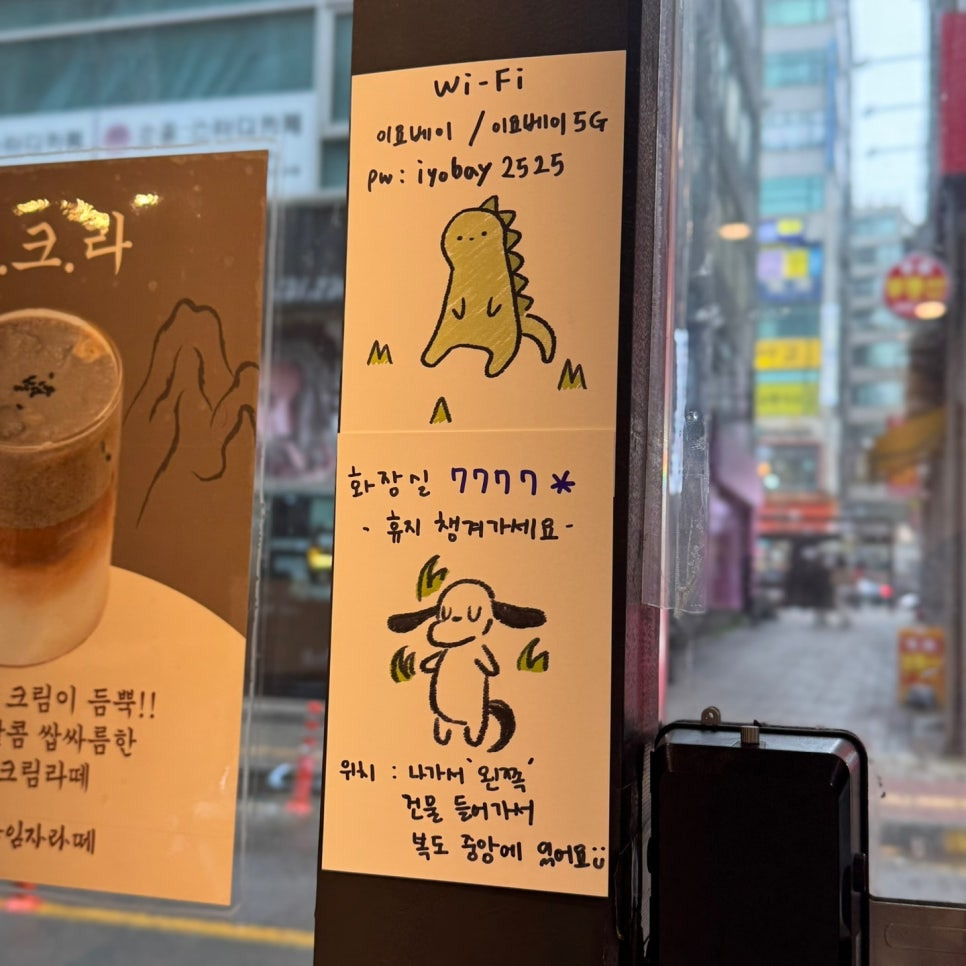 크.라
크림이 듬뿍!!
쌉싸름한
크림라떼
임자라떼
Wi-Fi
이요베이 / 이요베이 5G
pw : iyobay 2525
화장실 7777*
- 휴지 챙겨가세요 -
위치 : 나가서 '왼쪽'
건물 들어가서
복도 중앙에 있어요